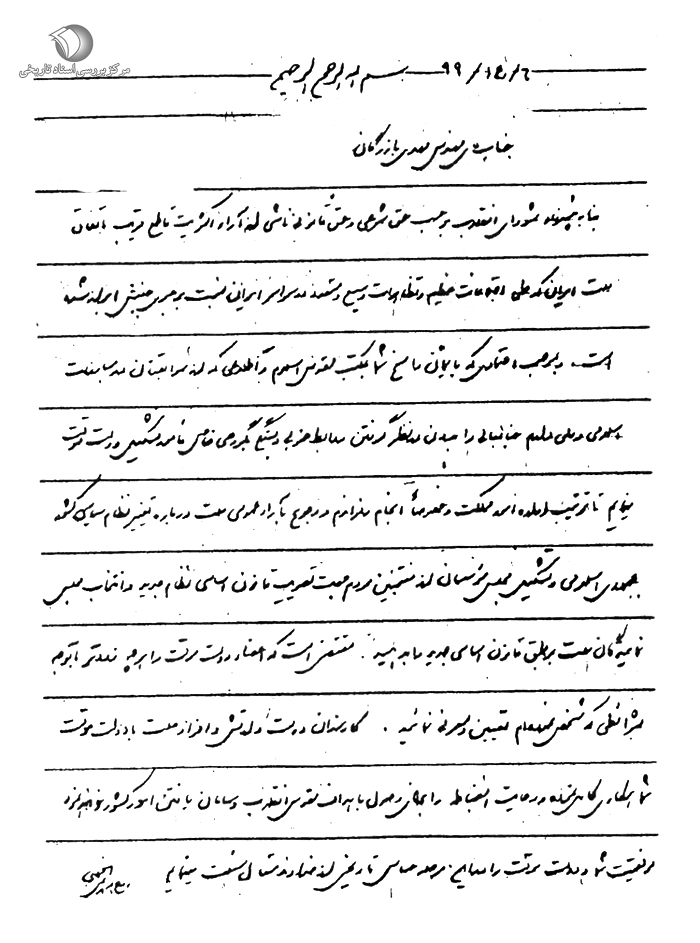 مرکز بررسی اسناد تاریخی
بسم الله الرحمن الرحیم ۶/ع۱/۹۹
جناب آقای مهندس مهدی بازرگان
بنا به پیشنهاد شورای انقلاب بر حسب حق شرعی و حق قانونی ناشی از آراء اکثریت قاطع قریب به اتفاق
ملت ایران که طی اجتماعات عظیم و تظاهرات وسیع و متعدد در سراسر ایران نسبت به رهبری جنبش ابراز شده
است. و بموجب اعتمادی که به ایمان راسخ شما به مکتب مقدس اسلام و اطلاعی که از سوابقتان در مبارزات
اسلامی و ملی دارم جنابعالی را بدون در نظر گرفتن روابط حزبی و بستگی به گروهی خاص مأمور تشکیل دولت موقت
مینمایم تا ترتیب اداره امور مملکت و خصوصاً انجام رفراندوم و رجوع به آراء عمومی ملت درباره تغییر نظام سیاسی کشور
به جمهوری اسلامی و تشکیل مجلس مؤسسان از منتخبین مردم جهت تصویب قانون اساسی نظام جدید و انتخاب مجلس
نمایندگان ملت بر طبق قانون اساسی جدید را بدهید. مقتضی است که اعضاء دولت موقت را هر چه زودتر با توجه
بشرائطی که مشخص نموده‌ام تعیین و معرفی نمائید. کارمندان دولت و ارتش و افراد ملت با دولت موقت
شما همکاری کامل نموده و رعایت انضباط را برای وصول به اهداف مقدس انقلاب و سامان یافتن امور کشور خواهند نمود
موفقیت شما و دولت موقت را در این مرحله حساس تاریخی از خداوند متعال مسئلت مینمایم الخمینی